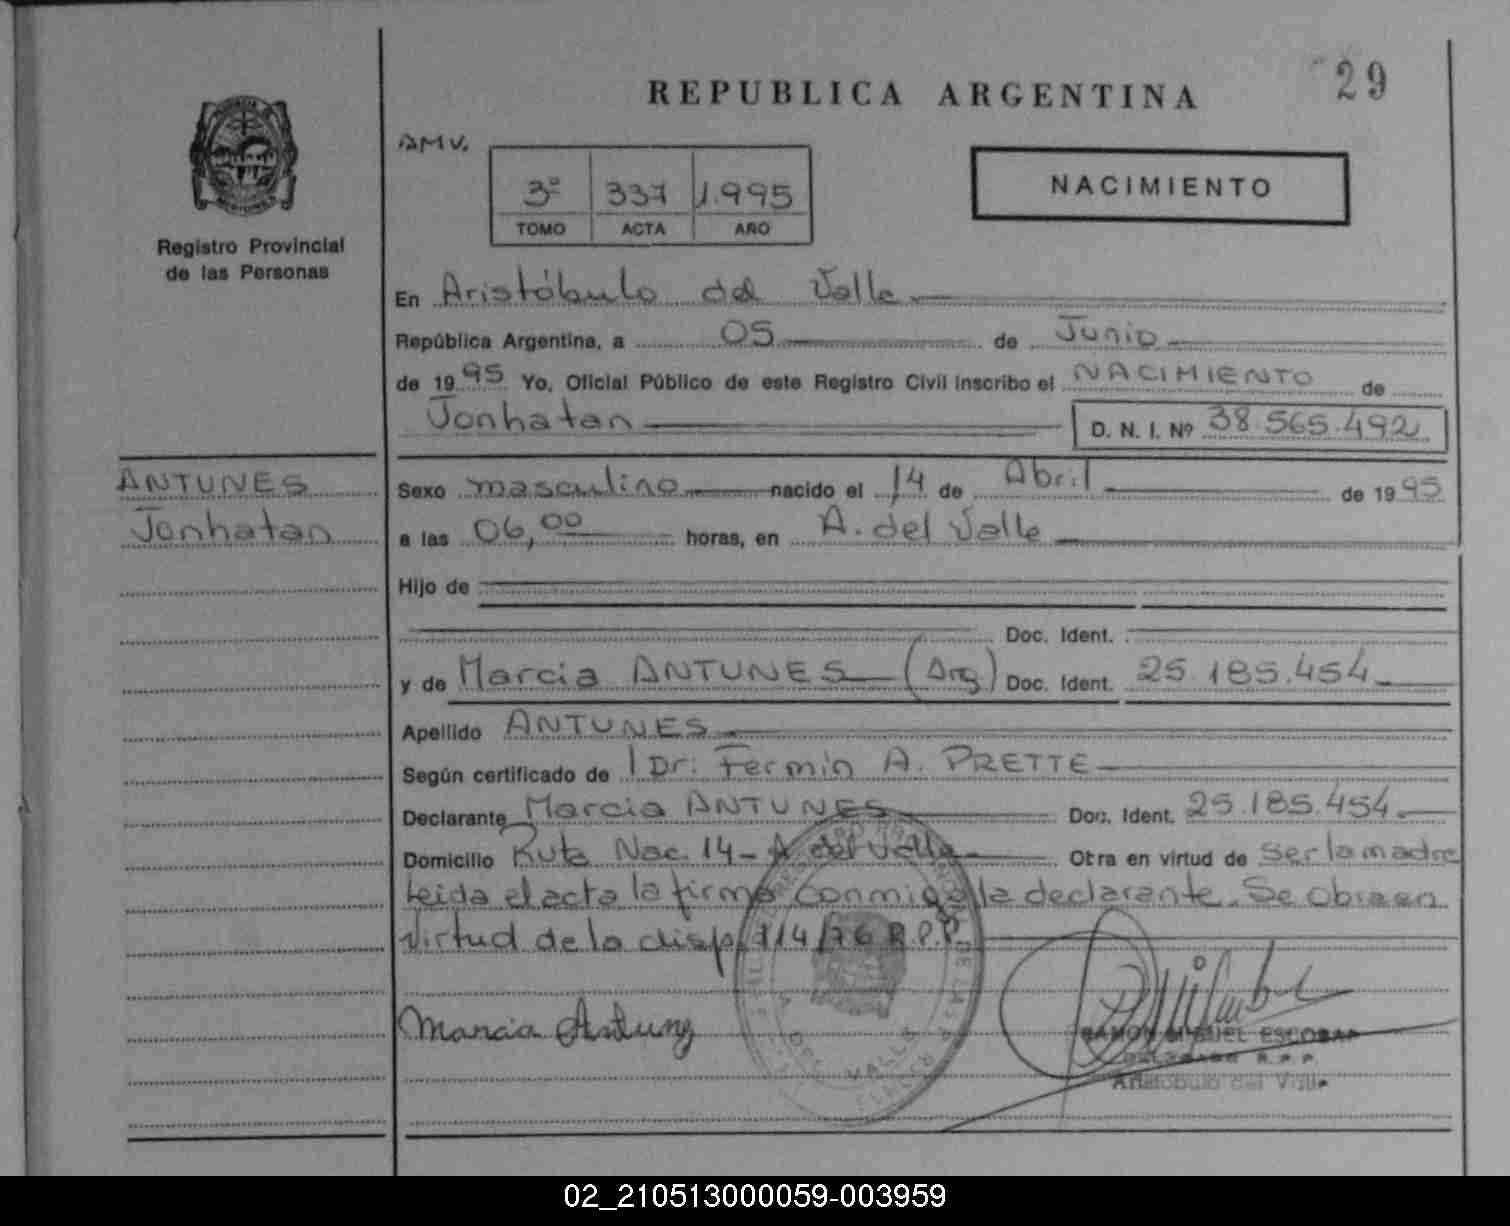 REPUBLICA ARGENTINA
29
AMV.
3º 337 1.995
TOMO ACTA AÑO
NACIMIENTO
Registro Provincial
de las Personas
En Aristóbulo del Valle
República Argentina, a 05 de Junio
de 1995 Yo, Oficial Público de este Registro Civil inscribo el NACIMIENTO de
Jonhatan D. N. I. Nº 38.565.492
ANTUNES
Jonhatan
Sexo masculino nacido el 14 de Abril de 1995
a las 06,00 horas, en A. del Valle
Hijo de
Doc. Ident.
y de Marcia ANTUNES (Arg) Doc. Ident. 25.185.454
Apellido ANTUNES
Según certificado de Dr: Fermin A. PRETTE
Declarante Marcia ANTUNES Doc. Ident. 25.185.454
Domicilio Ruta Nac. 14 - A del Valle Obra en virtud de ser la madre
Leida el acta la firma conmigo la declarante. Se obra en
virtud de la disp. 114/76 R.P.P.
Marcia Antunez
RAMON MIGUEL ESCOBAR
DELEGADO R.P.P.
Aristobulo del Valle
DEL VALLE
02_210513000059-003959